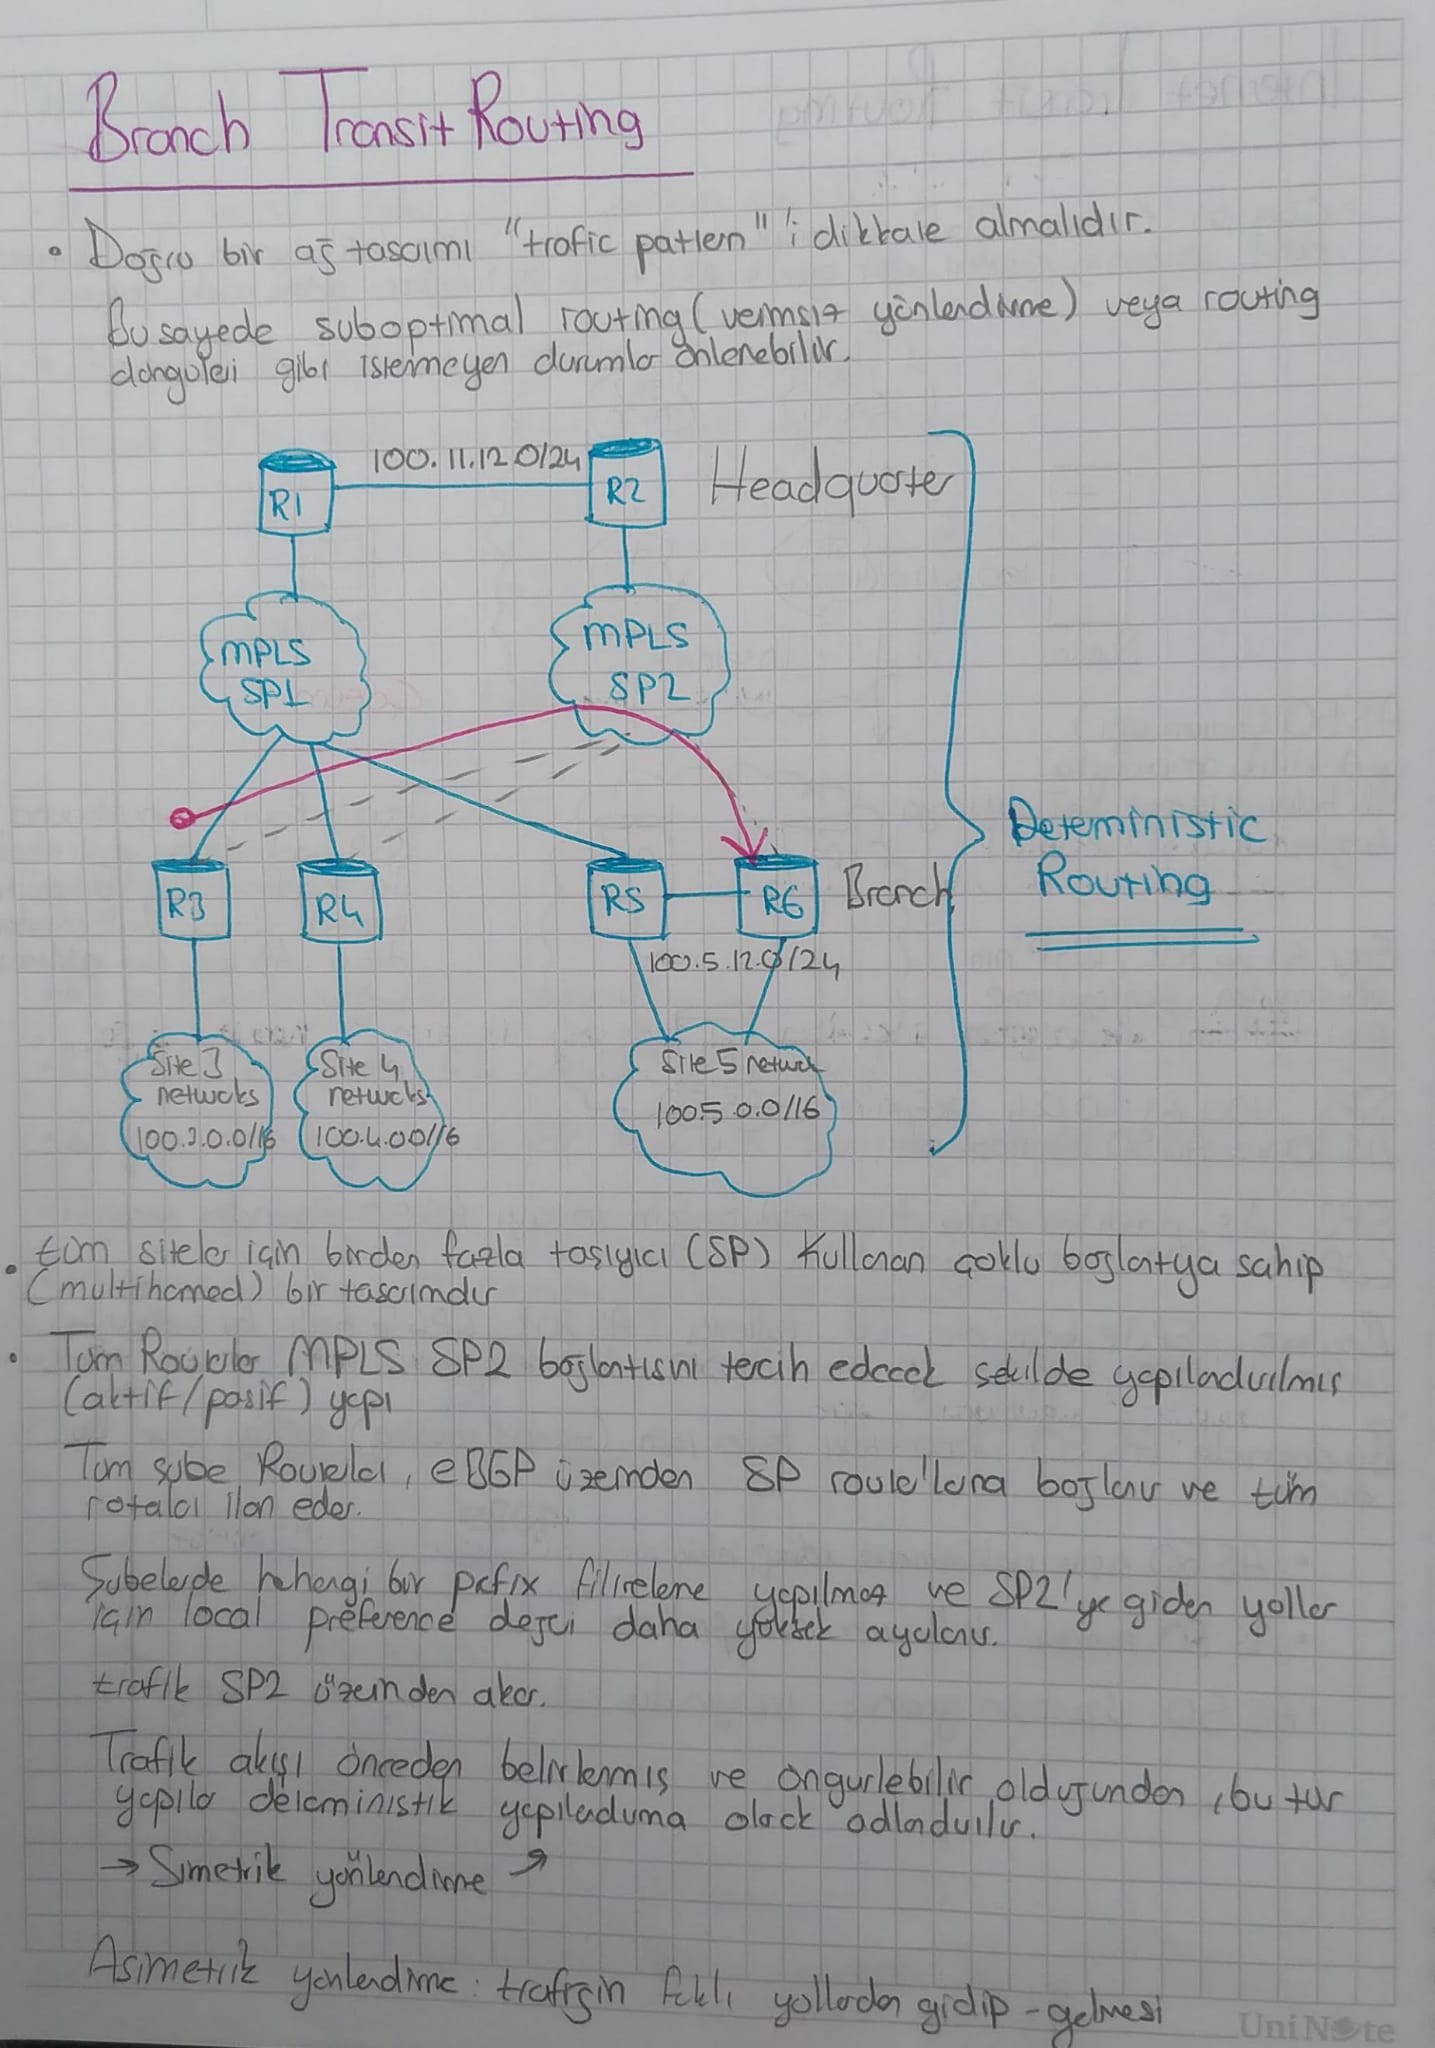 Branch Transit Routing
• Doğru bir ağ tasarımı "trafic pattern" 'i dikkate almalıdır.
Bu sayede suboptimal routing (verimsiz yönlendirme) veya routing
donguleri gibi istenmeyen durumlar önlenebilir.
R1
100.11.12.0/24
R2
Headquater
MPLS
SP1
MPLS
SP2
Deterministic
Routing
R3
R4
R5
R6
Branch
100.5.12.0/24
Site 3
networks
100.3.0.0/16
Site 4
networks
100.4.0.0/16
Site 5 network
100.5.0.0/16
• tüm siteler için birden fazla taşıyıcı (SP) kullanan çoklu bağlantıya sahip
(multihomed) bir tasarımdır
• Tüm Routerlar MPLS SP2 bağlantısını tercih edecek sekilde yapılandırılmıs
(aktif/pasif) yapı
Tüm şube Routerları, eBGP üzerinden SP route'larına bağlanır ve tüm
rotaları ilan eder.
Şubelerde herhangi bir prefix filtreleme yapılmaz ve SP2'ye giden yollar
için local preference değeri daha yüksek ayarlanır.
trafik SP2 üzerinden akar.
Trafik akışı önceden belirlenmiş ve öngürlebilir olduğundan, bu tür
yapılar deterministik yapılandırma olarak adlandırılır.
→ Simetrik yönlendirme ↗
Asimetrik yönlendirme : trafiğin farklı yollardan gidip - gelmesi
UniNote